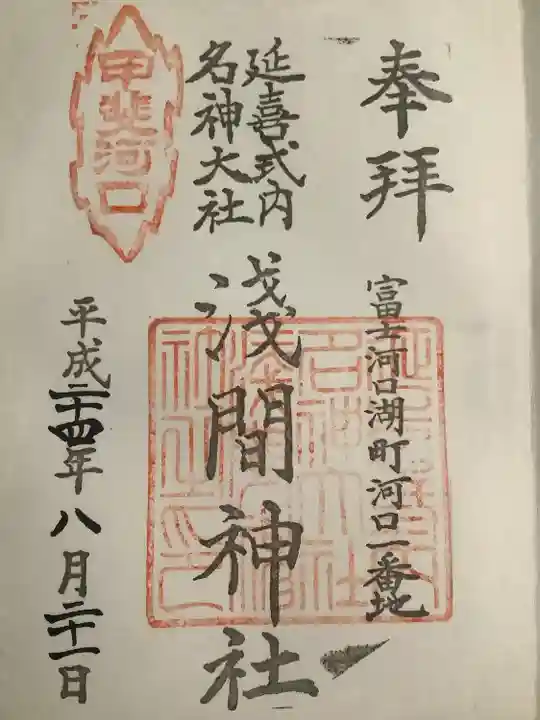 奉拝
富士河口湖町河口一番地
延喜式内
名神大社
淺間神社
甲斐河口
平成二十四年八月二十一日